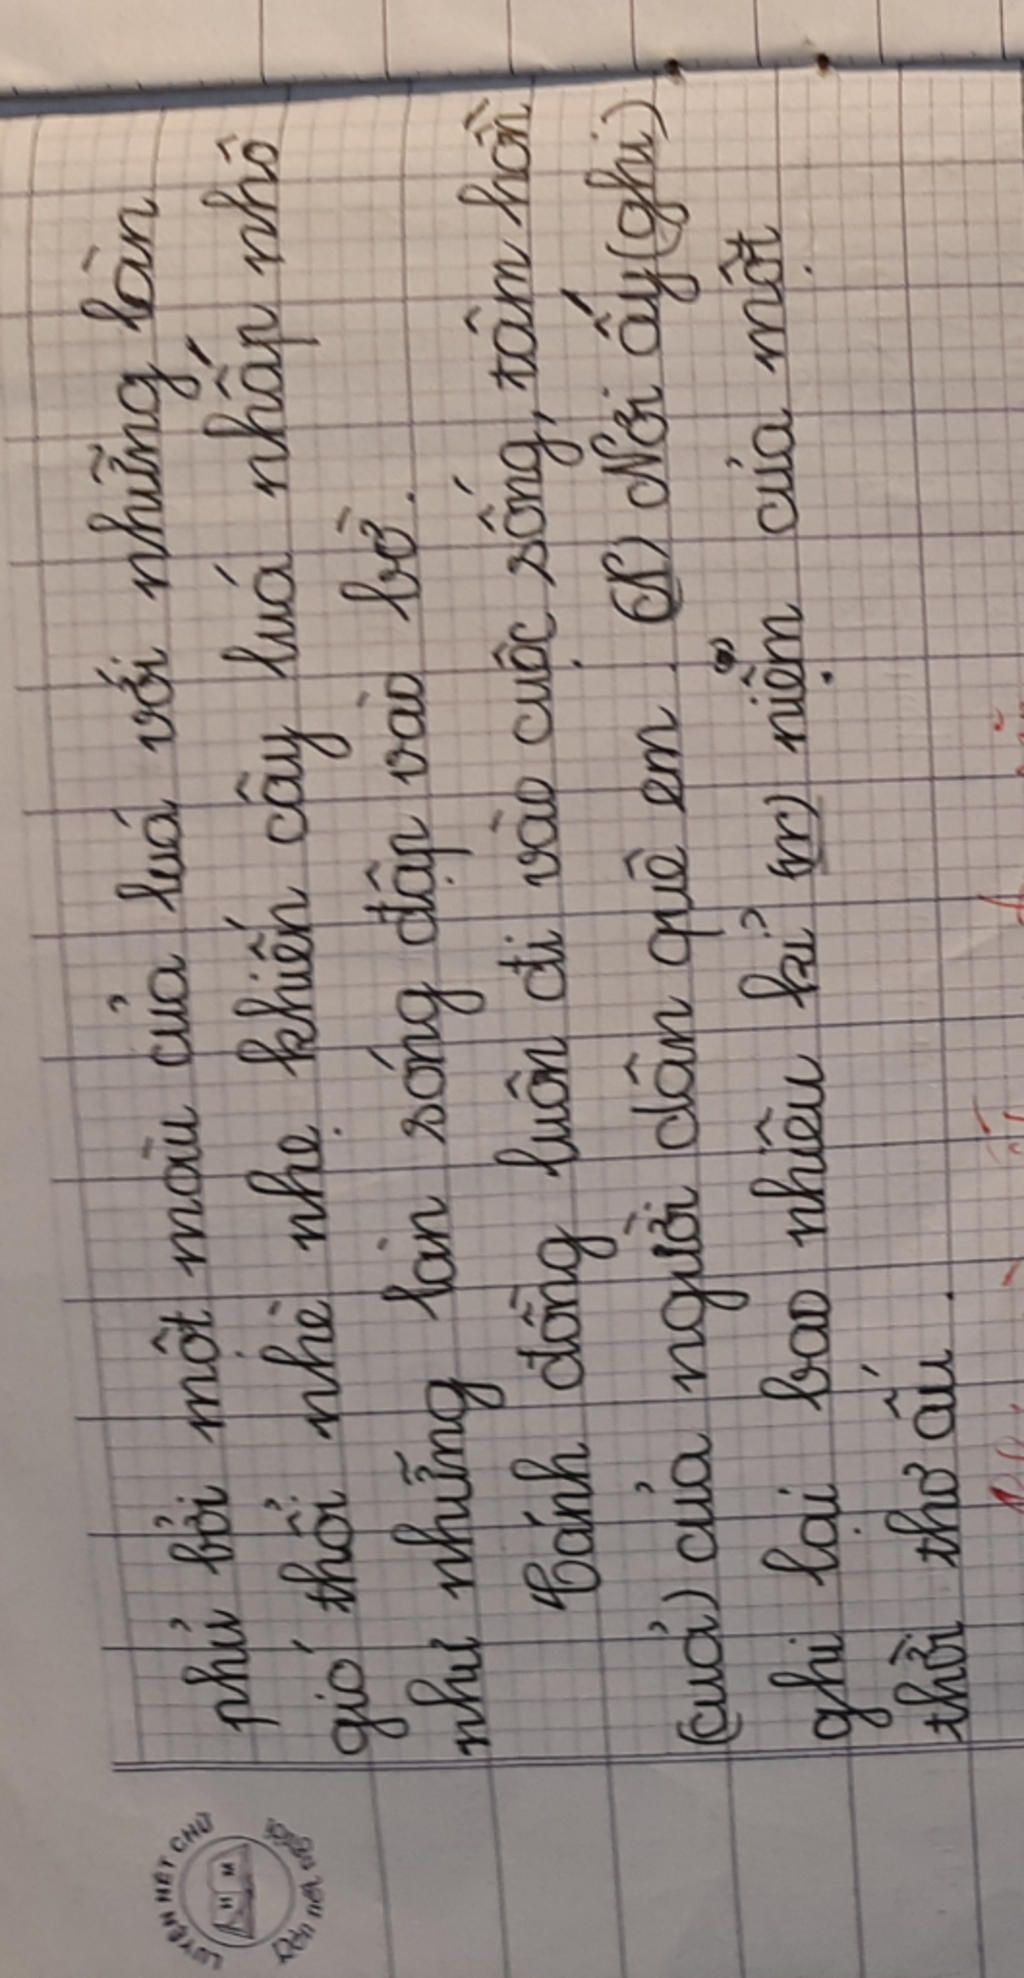 phủ bởi một màu của luá với những làn
gió thổi nhè nhẹ khiến cây luá nhấp nhô
như những làn sóng đập vào bờ.
Cánh đồng luôn đi vào cuộc sống, tâm hồn
(cuả) của người dân quê em. (N) Nơi ấy (ghi)
ghi lại bao nhiêu kỉ (n) niệm của một
thời thơ ấu.
LUYỆN NÉT CHỮ
Rèn nết người